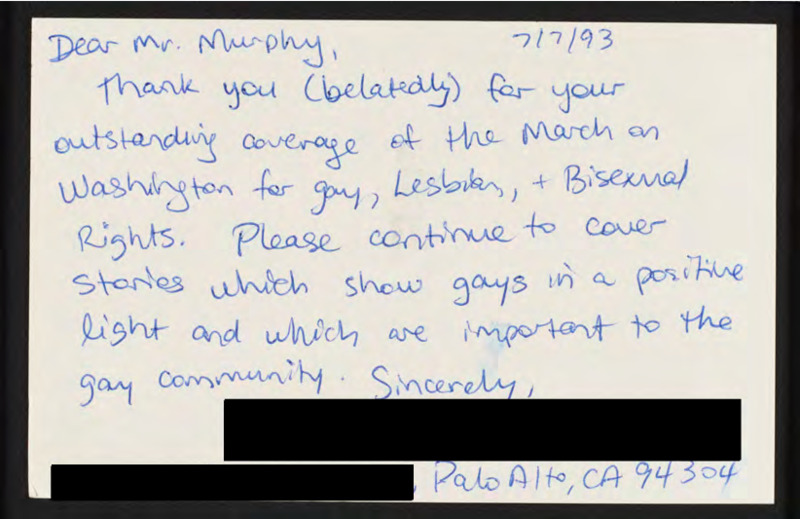 Dear Mr. Murphy, 7/7/93
Thank you (belatedly) for your
outstanding coverage of the March on
Washington for gay, Lesbian, + Bisexual
Rights. Please continue to cover
stories which show gays in a positive
light and which are important to the
gay community. Sincerely,
, Palo Alto, CA 94304